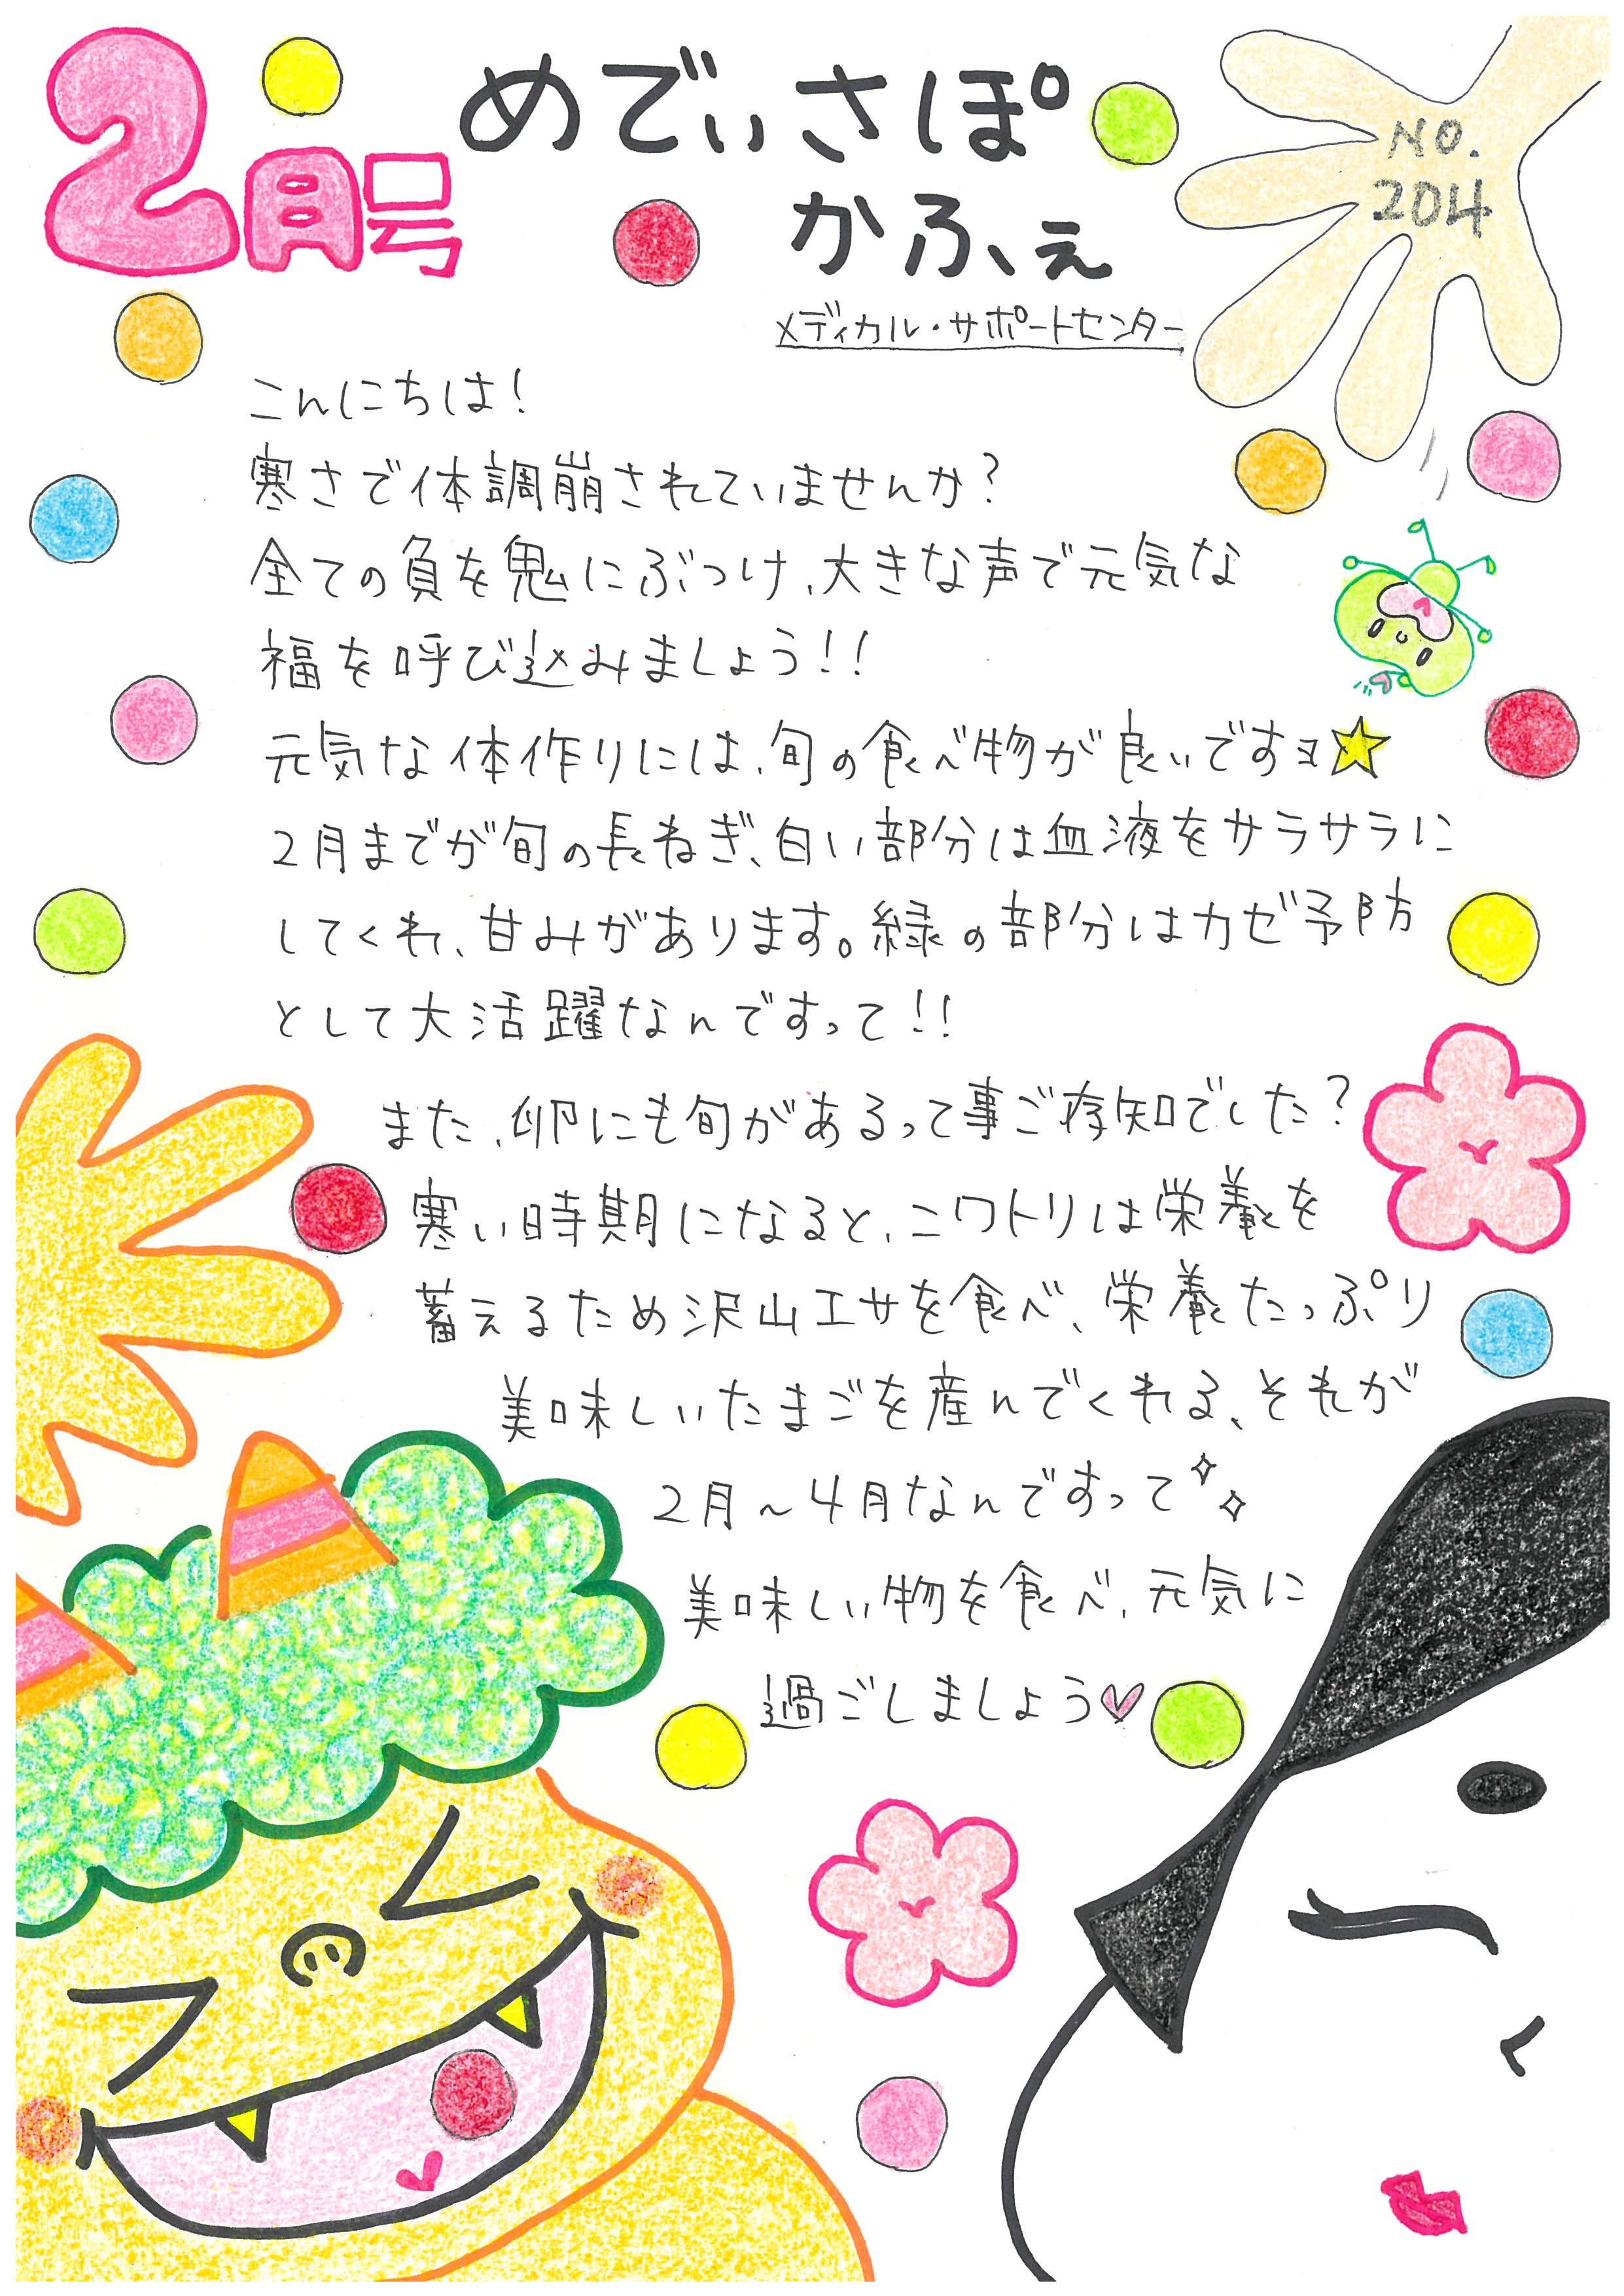 2月号
めでぃさぽ
かふぇ
NO.
204
メディカル・サポートセンター
こんにちは!
寒さで体調崩されていませんか?
全ての負を鬼にぶつけ、大きな声で元気な
福を呼び込みましょう!!
元気な体作りには、旬の食べ物が良いですヨ☆
2月までが旬の長ねぎ、白い部分は血液をサラサラに
してくれ、甘みがあります。緑の部分はカゼ予防
として大活躍なんですって!!
また、卵にも旬があるって事ご存知でした?
寒い時期になると、ニワトリは栄養を
蓄えるため沢山エサを食べ、栄養たっぷり
美味しいたまごを産んでくれる、それが
2月~4月なんですって
美味しい物を食べ、元気に
過ごしましょう♡